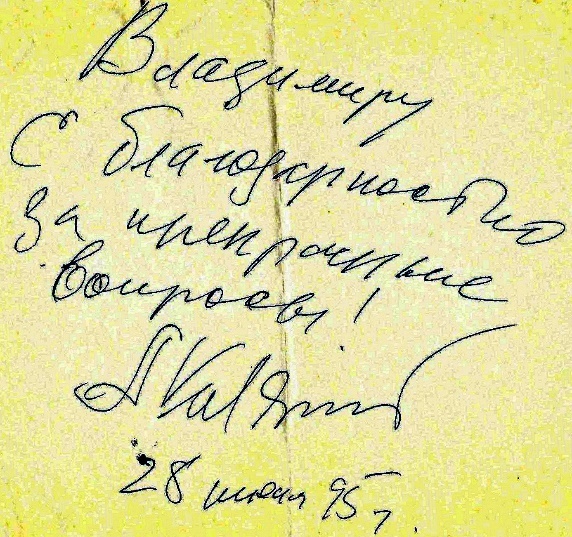 Владимиру
С благодарностью
за прекрасные
вопросы!
28 июня 95 г.